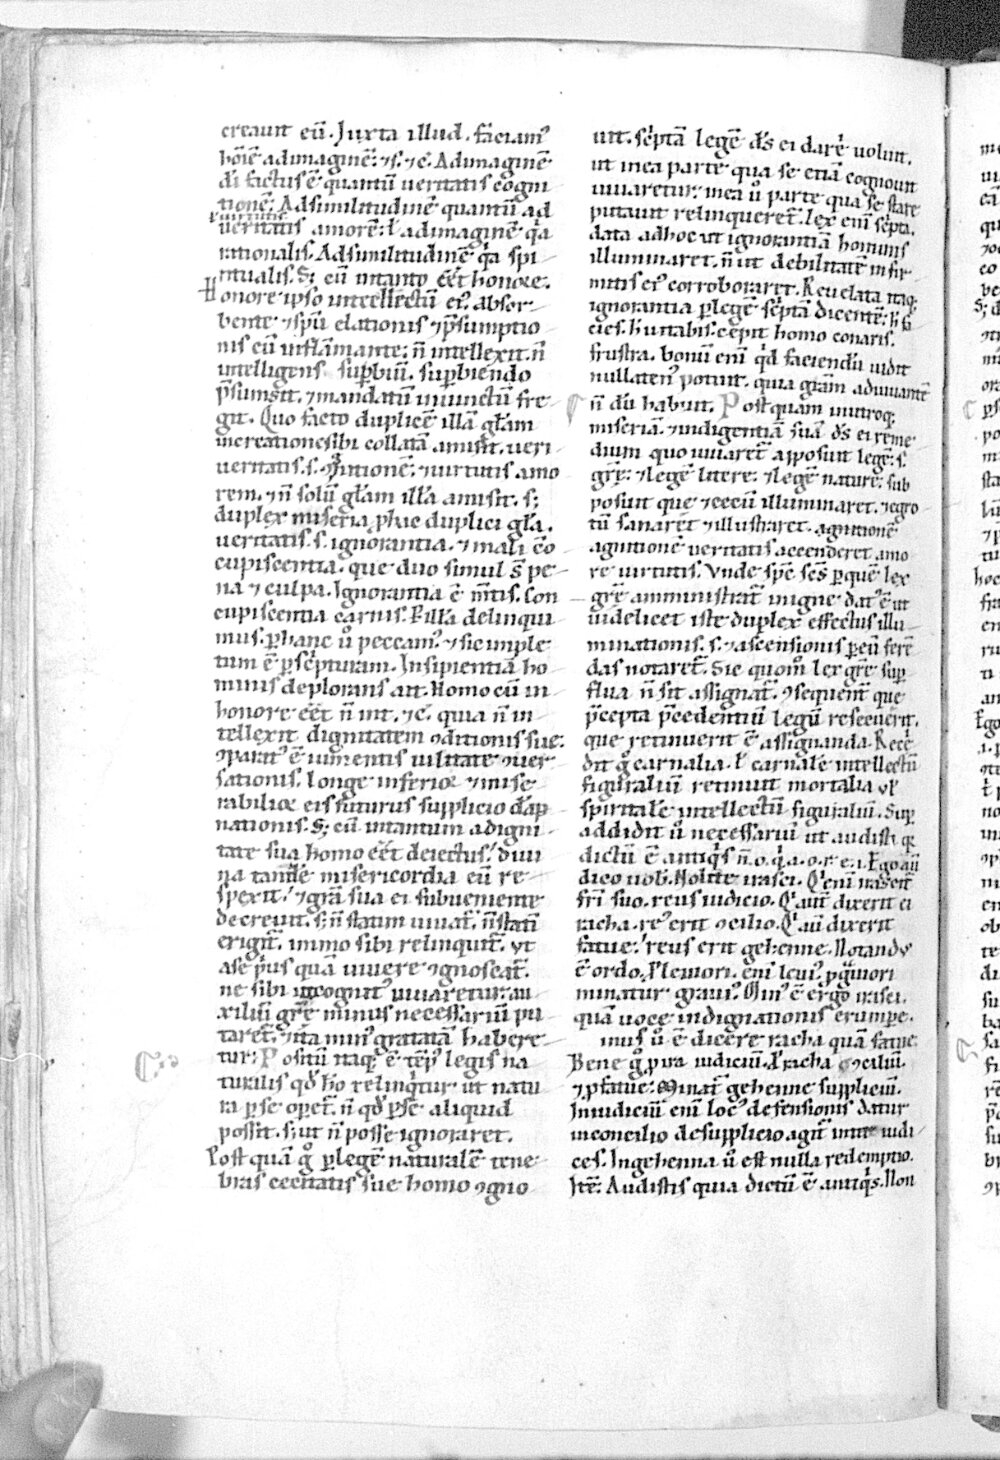 creauit eū. Juxta illud. faciam᷒
hoīe᷒ ad imaginē. ⁊ s̄. ⁊ c̄. Ad imaginē
dī factus ē quantū ueritatis cogni
tionē. Ad similitudinē quantū ad
ł uirtutis
ueritatis amorē. ł ad imaginē q̇a
rationalis. Ad similitudinē q̇a spi
ritualis. S; cū in tanto eēt honore.
onore ipso intellectū ei᷒ absor
bente ⁊ spū elationis ⁊ p̄sumptio
nis eū inflāmante. n̄ intellexit. n̄
intelligens. supbiuit. supbiendo
p̄sumsit. ⁊ mandatū iniunctū fre
git. Quo facto duplicē illā gl̄am
in creatione sibi collatā amisit. ueri
ueritatis. s. ꝯgnitionē. ⁊ uirtutis amo
rem. ⁊ n̄ solū gl̄am illā amisit. s;
duplex miseria p hac duplici gl̄a.
ueritatis. s. ignorantia. ⁊ mali ꝯ̄
cupiscentia. que duo simul s̄t pe
na ⁊ culpa. Ignorantia ē m̄tis. Con
cupiscentia carnis. Ex illa delinqui
mus. p hanc ů peccam᷒. ⁊ sic imple
tum ē p sc̄pturam. Insipientiā ho
minis deplorans ait. Homo cū in
honore eēt n̄ int. ⁊ c̄. quia n̄ in
tellexit dignitatem ꝯditionis sue.
ꝯparat᷒ ē iumentis uilitate ꝯuer
sationis. longe inferior ⁊ mise
rabilior eis futurus supplicio dāp
nationis. S; cū in tantum a digni
tate sua homo eēt deiectus. diui
na tandē misericordia eū re
spexit. ⁊ gr̄a sua ei subueniente
decreuit. s; n̄ statim uiuat. n̄ statī
erigit. immo sibi relinquit. vt
a se p̊us quā uiuere ꝯgnoscat.
ne sibi incognit᷒ iuuaretur. au
xiliū gr̄e minus necessariū pu
taret. ⁊ ita min᷒ gratā habere
tur. Positū itaq; ē tēp᷒ legis na
turalis qd̄ ho relinq̇tur ut natu
ra p se opet. n̄ qd̄ p se aliquid
possit. s; ut n̄ posse ignoraret.
Post quā g̊ p legē naturalē tene
bras cecitatis sue homo ꝯgno
uit. sc̄ptā legē d̄s ei darē uoluit.
ut in ea parte qua se etiā cognouit
iuuaretur. in ea ů parte qua se stare
putauit relinqueret. Lex eni sc̄pta.
data ad hoc ut ignorantiā hominis
illuminaret. n̄ ut debilitatē infir
mitatis ei᷒ corroboraret. Reuelata itaq;
ignorantia p legē sc̄ptā dicentē. h̄ fa
cies. h̄ uitabis. cepit homo conari.
frustra. bonū eni qd̄ faciendū uidit
nullaten᷒ potuit. quia gr̄am adiuuantē
n̄ dū habuit. Post quam in utroq;
miseriā. ⁊ indigentiā suā d̄s ei reme
dium quo iuuaret apposuit legē. s.
gr̄e. ⁊ legē litere. ⁊ legē nature. sub
posuit que ⁊ cecū illuminaret. ⁊ egro
tū sanaret ⁊ illustraret. agnitionē
agnitionē ueritatis accenderet amo
re uirtutis. Vnde sp̄c sc̄s p quē lex
gr̄e amministrat in igne dat᷒ ē ut
uidelicet iste duplex effectus illu
minationis. s. ⁊ ascensionis p eū feren
das notaret. Sic quom̊ lex gr̄e sup
flua n̄ sit assignat. ꝯsequent que
p̄cepta p̄cedentiū legū resecuerit.
que retinuerit ē assignanda. Rece
dit g̊ carnalia. ł carnale intellectū
figuraliū retinuit mortalia ul
spiritale intellectū figuraliū. Sup
addidit ů necessariū ut audistis q;
dictū ē antiq̇s n̄. o. q̇. a. o. r. e. i. Ego aū
dico uob. Nolite irasci. Q̇ eni irascit
fr̄i suo. reus iudicio. Q̇ aut dixerit ei
racha. re᷒ erit ꝯcilio. Q̇ aū dixerit
fatue. reus erit gehenne. Notandū
ē ordo. A leuiori. eni leui᷒. p g̊uiori
minatur graui᷒. Min᷒ ē ergo irasci.
quā uoce indignationis erumpe.
inus ů ē dicere racha quā fatue.
Bene g̊ p ira iudiciū. p racha ꝯciliū.
⁊ p fatue. Minat gehenne suppliciū.
In iudiciū eni loc᷒ defensionis datur
in concilio de supplicio agit inter iudi
ces. In gehenna ů est nulla redemptio.
Itē. Audistis quia dictū ē antiq̇s. Non